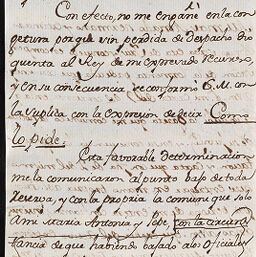 Con efecto, no me engañé en la con
getura porque sin perdida de despacho dio
quenta al Rey de mi enterado recurso,
y en su consecuencia se conformó S. M. con
la Suplica con la expresion de decir Como
lo pide.
Esta favorable determinacion
me la comunicaron al punto bajo de toda
reserva, y con la propria la comuniqué solo
a mi Maria Antonia y Pepe, con la circuns
tancia de que habiendo bajado a los Oficiales